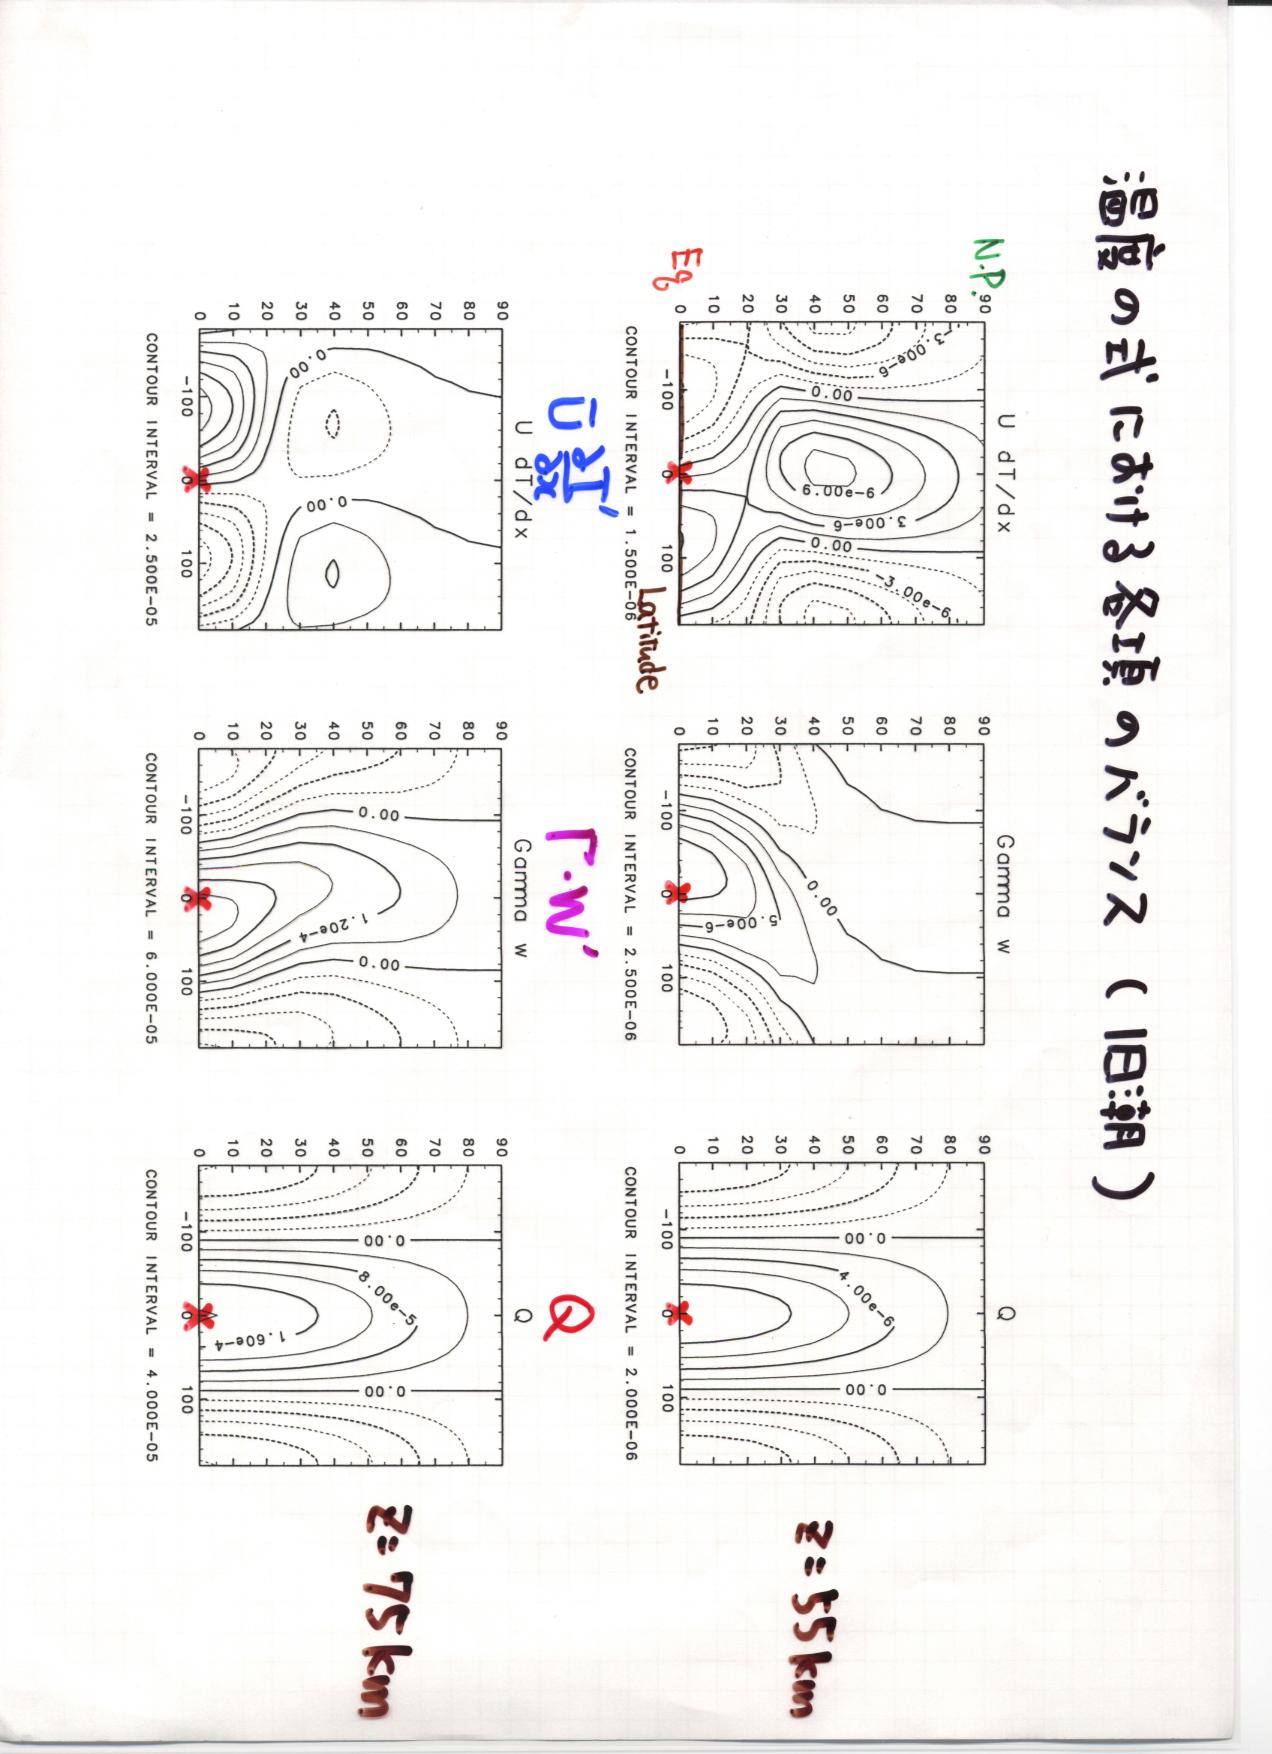 温度の式における各項のバランス (旧潮)
N.P.
Eq
U dT/dx
90
80
70
60
50
40
30
20
10
0
-3.00e-6
0.00
6.00e-6
3.00e-6
0.00
-3.00e-6
-100
0
100
CONTOUR INTERVAL = 1.500E-06
Latitude
Gamma w
90
80
70
60
50
40
30
20
10
0
0.00
5.00e-6
-100
0
100
CONTOUR INTERVAL = 2.500E-06
Q
90
80
70
60
50
40
30
20
10
0
0.00
4.00e-6
0.00
-100
0
100
CONTOUR INTERVAL = 2.000E-06
z=55km
Ū ∂T'/∂x
Γ·W'
Q
U dT/dx
90
80
70
60
50
40
30
20
10
0
0.00
0.00
-100
0
100
CONTOUR INTERVAL = 2.500E-05
Gamma w
90
80
70
60
50
40
30
20
10
0
0.00
1.20e-4
0.00
-100
0
100
CONTOUR INTERVAL = 6.000E-05
Q
90
80
70
60
50
40
30
20
10
0
0.00
8.00e-5
1.60e-4
0.00
-100
0
100
CONTOUR INTERVAL = 4.000E-05
z=75km